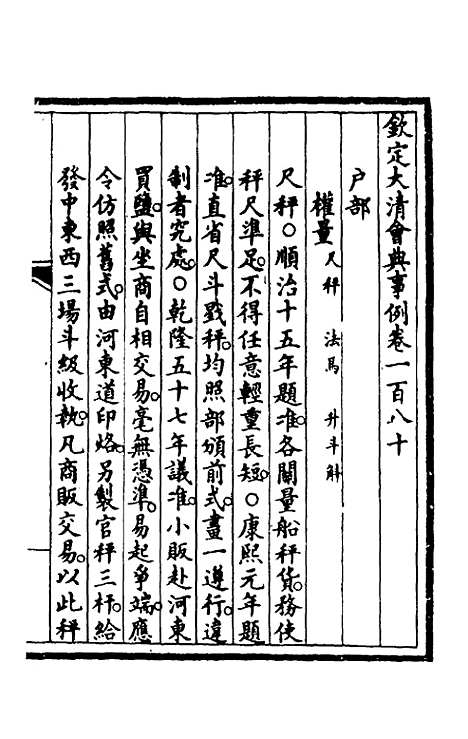 欽定大清會典事例卷一百八十
户部
權量尺秤 法馬 升斗斛
尺秤○順治十五年題准。各關量船秤貨。務使
秤尺準足。不得任意輕重長短。○康熙元年題
准。直省尺斗戥秤。均照部頒前式。畫一遵行。違
制者究處。○乾隆五十七年議准。小販赴河東
買鹽。與坐商自相交易。毫無憑準。易起爭端。應
令仿照舊式。由河東道印烙。另製官秤三杆。給
發中東西三場斗級收執。凡商販交易。以此秤